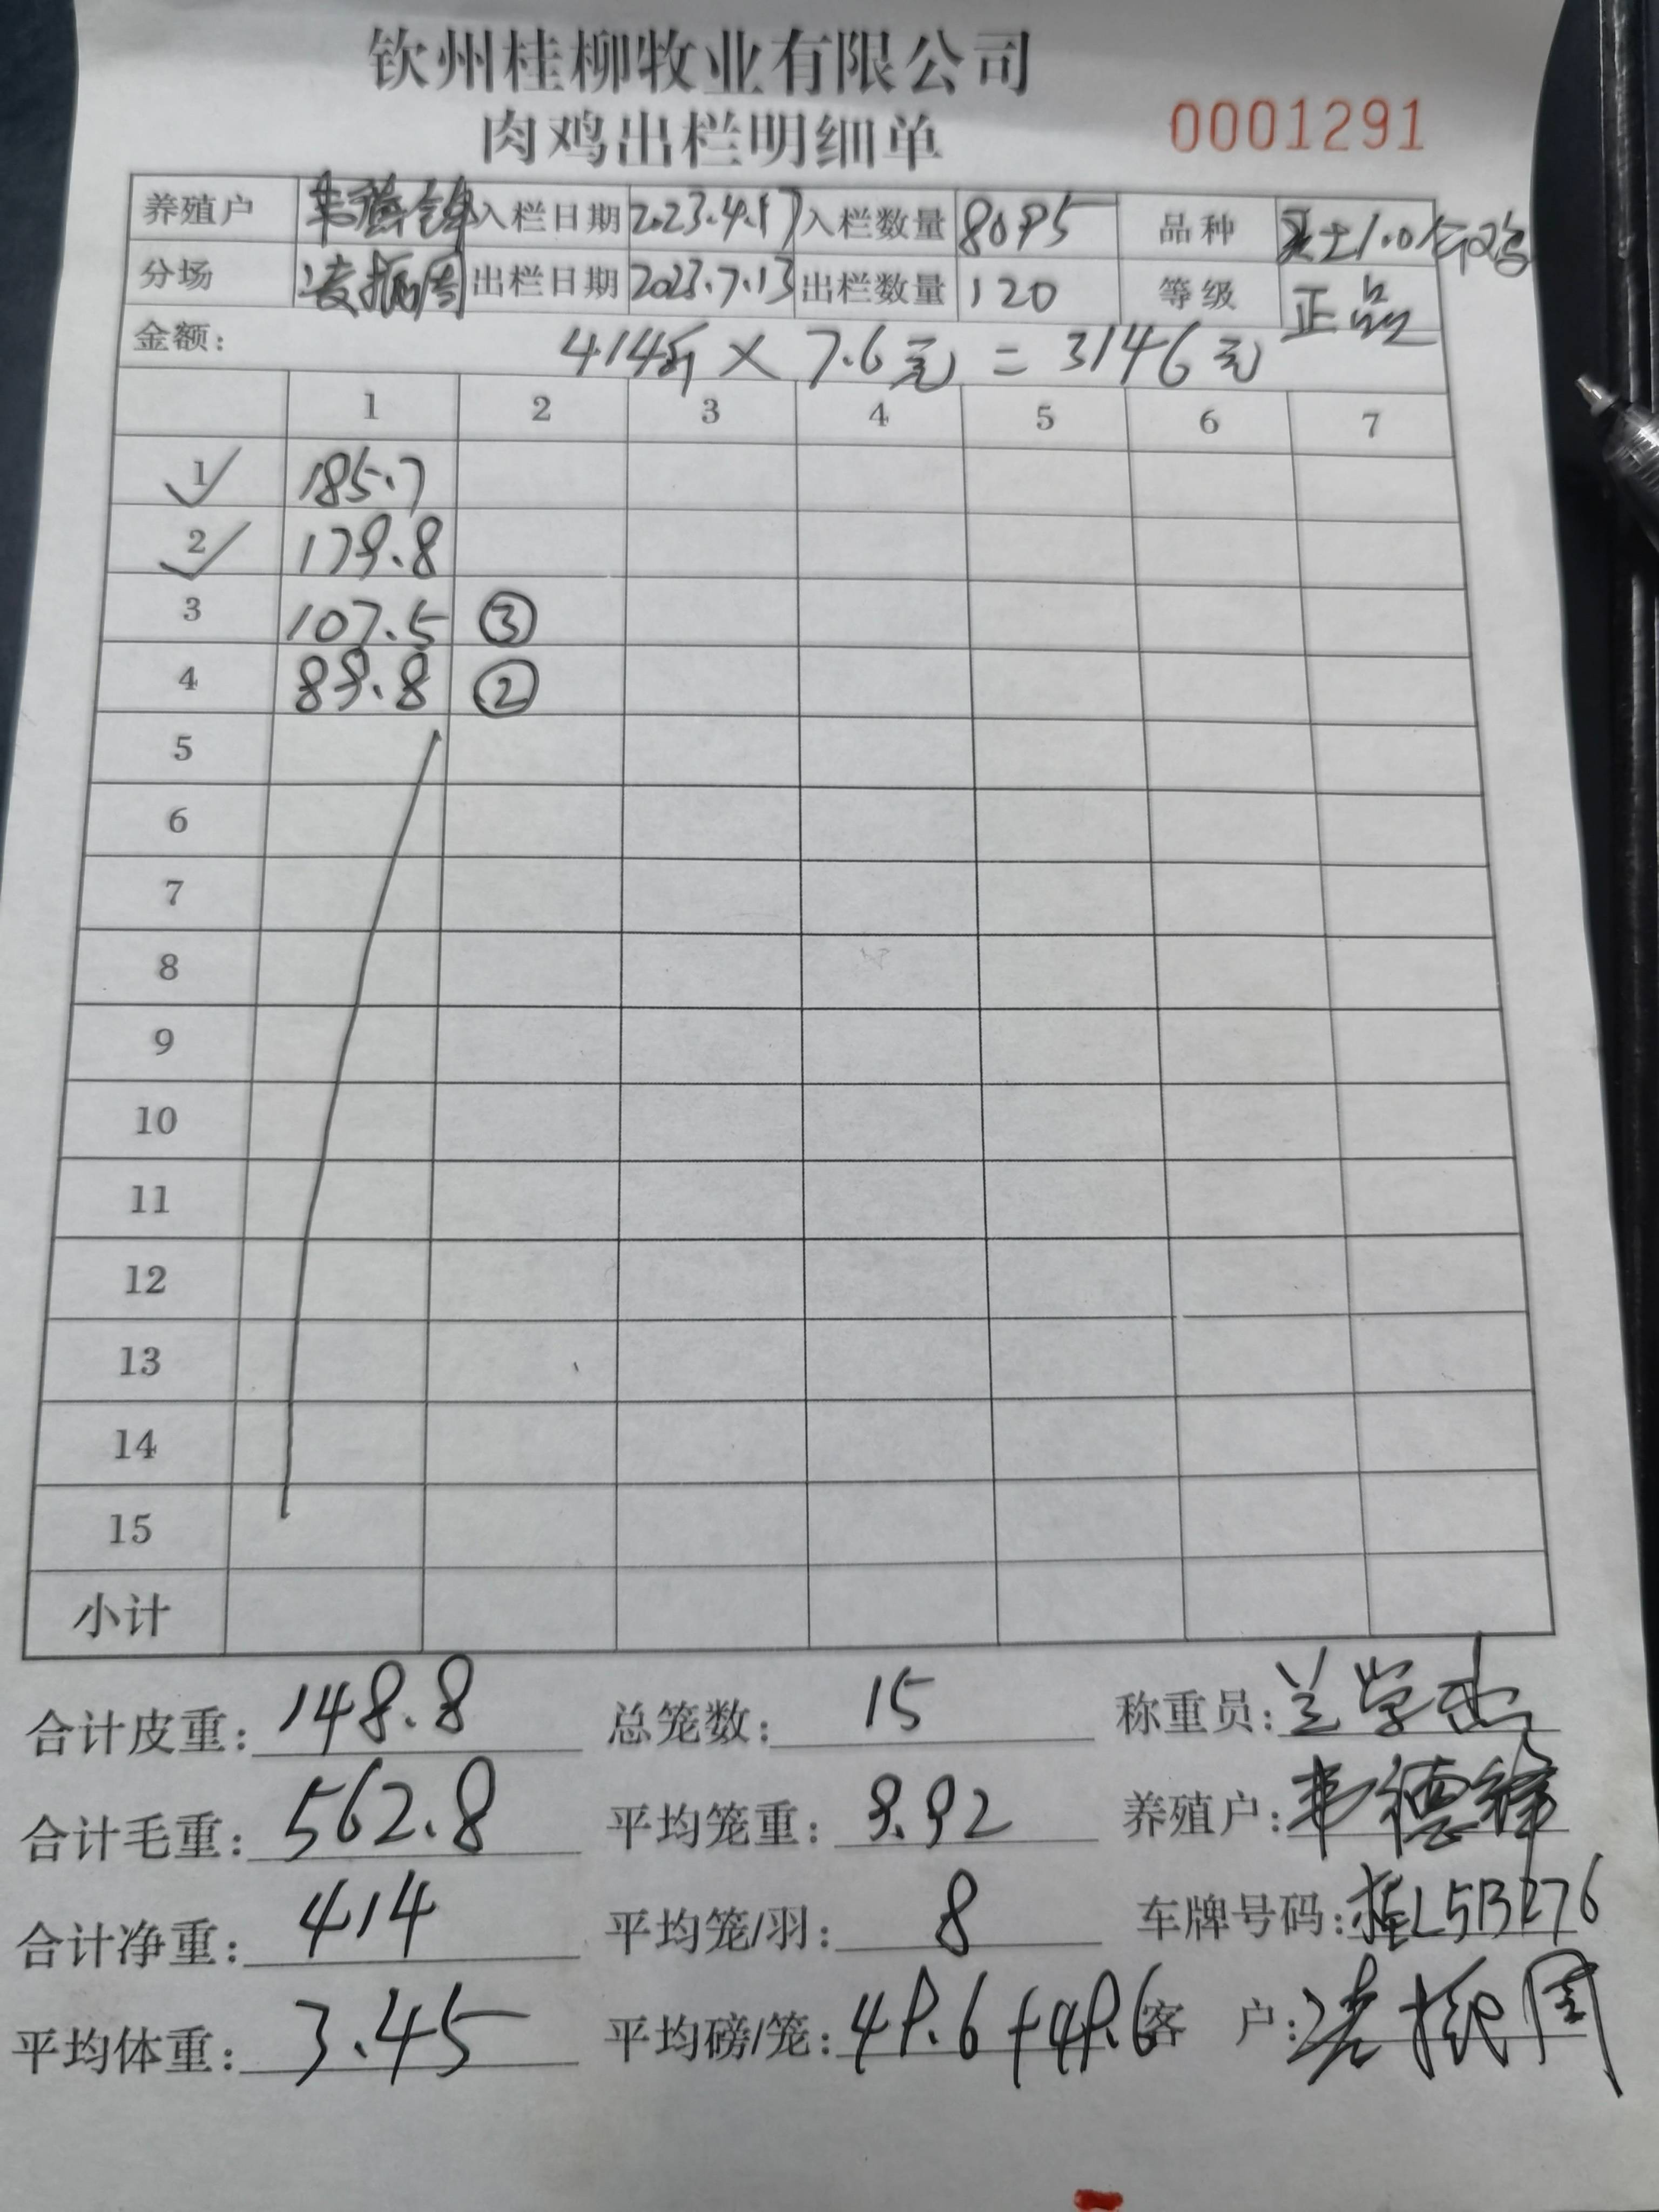 钦州桂柳牧业有限公司
肉鸡出栏明细单 0001291
养殖户 韦德锋 入栏日期 2023.4.17 入栏数量 8095 品种 土1.0
分场 凌振周 出栏日期 2023.7.13 出栏数量 120 等级 正品
金额: 414斤×7.6元=3146元
1 2 3 4 5 6 7
1 185.7
2 179.8
3 107.5 ③
4 89.8 ②
5
6
7
8
9
10
11
12
13
14
15
小计
合计皮重: 148.8 总笼数: 15 称重员: 兰学
合计毛重: 562.8 平均笼重: 9.92 养殖户: 韦德锋
合计净重: 414 平均笼/羽: 8 车牌号码: 桂L5B276
平均体重: 3.45 平均磅/笼: 49.6+49.6 客 户: 凌振周